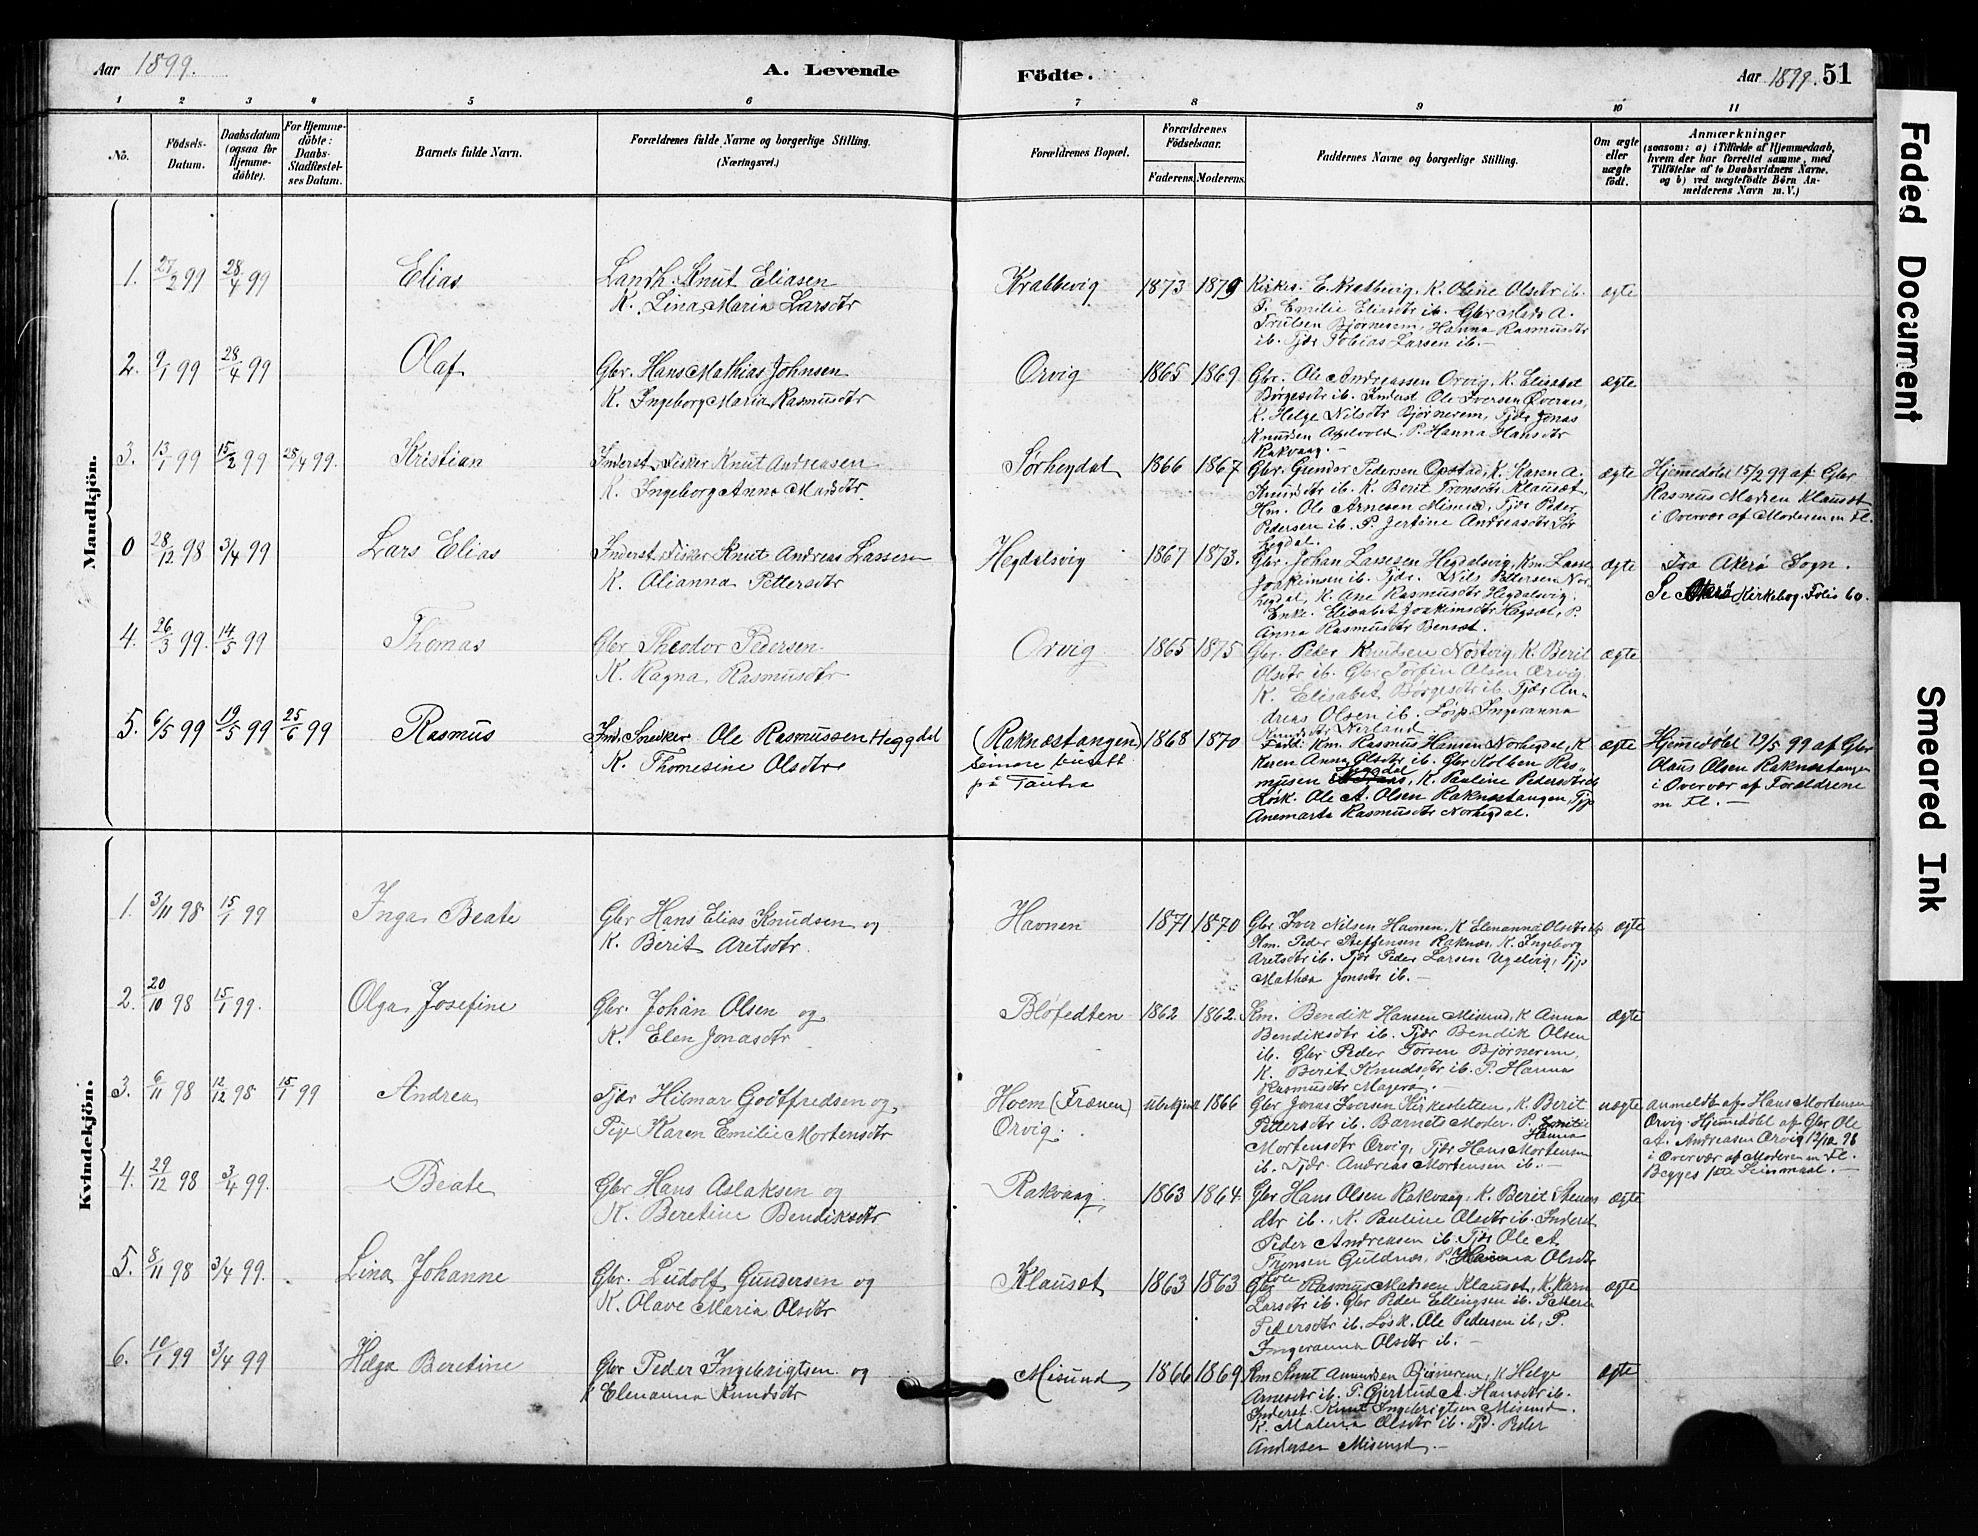 Aar 1899.
A. Levende
Födte.
Aar 1899. 51
1 2 3 4 5 6 7 8 9 10 11
No.
Födsels-Datum.
Daabsdatum (ogsaa for Hjemmedöbte).
For Hjemmedöbte: Daabs-Stadfæstelses Datum.
Barnets fulde Navn.
Forældrenes fulde Navne og borgerlige Stilling. (Næringsvei.)
Forældrenes Bopæl.
Forældrenes Födselsaar.
Faderens. Moderens.
Faddernes Navne og borgerlige Stilling.
Om ægte eller uægte födt.
Anmærkninger
(saasom: a) i Tilfælde af Hjemmedaab, hvem der har forrettet samme, med Tilföielse af to Daabsvidners Navne. og b) ved uægtefödte Börn Anmelderens Navn m. V.)
Mandkjön.
1. 27/2 99 28/4 99 Elias
Landh. Knut Eliasen
K. Lina Maria Larsdtr
Krabbevig 1873 1879
Kirkes. E. Krabbevig, K. Oline Olsdtr ib.
P. Emilie Eliasdtr ib. Gbr Mads A.
Trulsen Bjørnerem, Hanna Rasmusdtr
ib. Tjdr Tobias Larsen ib. —
ægte
2. 9/1 99 28/4 99 Olaf
Gbr. Hans Mathias Johnsen
K. Ingeborg Maria Rasmusdtr
Orvig 1865 1869
Gbr. Ole Andreassen Orvig, K. Elisabet
Børgesdtr ib. Inderst Ole Iversen
K. Helge Nilsdtr Bjørnerem, Tjdr Jonas
Knudsen, P. Hanna Hansdtr
Rakvaag. —
ægte
3. 13/1 99 15/2 99 28/4 99. Kristian
Inderst Fisker Knut Andreasen
K. Ingeborg Anna Madsdtr
Sørhegdal 1866 1867
Gbr. Gunder Pedersen Opstad, K. Karen A.
Knudsdtr ib. K. Berit Tronsdtr Klauset,
Hm. Ole Arnesen Misund, Tjdr Peder
Pedersen ib. P. Jertine Andreasdtr Sør
hegdal.
ægte
Hjemmedøbt 15/2 99 af Gbr
Rasmus Madsen Klauset
i Overvær af Moderen m Fl.
0 28/12 98 3/4 99 Lars Elias
Inderst Fisker Knut Andreas Lassesen
K. Alianna Pettersdtr
Hegdalsvig 1867 1873.
Gbr. Johan Lassesen Hegdalsvig, Km. Lasse
Joakimsen ib. Tjdr. Nils Pettersen Nor-
hegdal, K. Ane Rasmusdtr Hegdalsvig.
Enke. Elisabet Joakimsdtr Hegdal, P.
Anna Rasmusdtr Benset.
ægte
Fra Akerø Sogn.
Se Kirkebog. Folio 60.
4. 26/3 99. 14/5 99 Thomas
Gbr Theodor Pedersen
K. Ragna Rasmusdtr
Orvig 1865 1875
Gbr. Peder Knudsen Nostvig, K. Berit
Olsdtr ib. Gbr Torfin Olsen Orvig
K. Elisabet Børgesdtr ib. Tjdr An-
dreas Olsen ib. Løsp. Ingeranna
Knudsdtr Nerland
ægte
5. 6/5 99 19/5 99 25/6 99 Rasmus
Ind. Snedker Ole Rasmussen Heggdal
K. Thomesine Olsdtr
(Raknæstangen)
senere bosatt
på Tautra
1868 1870
Fadd: Km. Rasmus Hansen Norhegdal, K
Karen Anna Olsdtr ib. Gbr Kolben Ras-
musen Hegdal, K. Pauline Pedersdtr ib
Løsk. Ole A. Olsen Raknæstangen, Tjp
Anemarta Rasmusdtr Norhegdal.
ægte
Hjemmedøbt 19/5 99 af Gbr
Olaus Olsen Raknæstangen
i Overvær af Forældrene
m Fl. —
Kvindekjön.
1. 3/11 98. 15/1 99 Inga Beate
Gbr Hans Elias Knudsen og
K. Berit Aretsdtr.
Havnen 1871 1870
Gbr Iver Nilsen Havnen, K Elenanna Olsdtr ib
Hm. Peder Steffensen Raknæs, K. Ingeborg
Aretsdtr ib. Tjdr Peder Larsen Ugelvig, Tjp
Mathea Jonsdtr ib. —
ægte
2. 20/10 98 15/1 99. Olga Josefine
Gbr. Johan Olsen og
K. Elen Jonasdtr
Bløfedten 1862 1862.
Km. Bendik Hansen Misund, K Anna
Bendiksdtr ib. Tjdr Bendik Olsen
ib. Gbr Peder Torsen Bjørnerem,
K. Berit Knudsdtr ib. P. Hanna
Rasmusdtr Magerø. —
ægte
3. 6/11 98 12/12 98 15/1 99 Andrea
Tjdr Hilmar Godtfredsen og
Pige Karen Emilie Mortensdtr
Hoem (Frænen)
Orvig.
ubekjent 1866
Gbr Jonas Iversen Kirkesletten, K. Berit
Pettersdtr ib. Barnets Moder. P. Emilie
Hanna
Mortensdtr Orvig, Tjdr Hans Mortensen
ib. Tjdr. Andreas Mortensen ib. —
uægte
anmeldt af Hans Mortensen
Orvig. Hjemmedøbt af Gbr Ole
A. Andreasen Orvig 12/12 98
i Overvær af Moderen m Fl.
Begges 1ste Leiermaal. —
4. 29/12 98 3/4 99. Beate
Gbr Hans Aslaksen og
K. Beretine Bendiksdtr
Rakvaag 1863 1864
Gbr Hans Olsen Rakvaag, K. Berit Stens
dtr ib., K. Pauline Olsdtr ib. Inderst
Peder Andreasen ib. Tjdr Ole A.
Tronsen Guldnæs, P. Hanna Olsdtr
ægte
5. 8/11 98 3/4 99. Lina Johanne
Gbr. Ludolf Gundersen og
K. Olave Maria Olsdtr
Klauset 1863 1863
Gbr Rasmus Madsen Klauset, K. Karn
Larsdtr ib. Gbr Peder Ellingsen ib. P. Meria
Pedersdtr ib. Løsk. Ole Pedersen ib, P.
Ingeranna Olsdtr ib. —
ægte
6. 10/1 99 3/4 99 Helga Beretine
Gbr Peder Ingebrigtsen og
K Elenanna Knudsdtr
Misund 1866 1869
Km Knut Amundsen Bjørnerem, K Helge
Arnesdtr ib. P. Gjertrud A. Hansdtr ib.
Inderst Knut Ingebrigtsen Misund.
K. Malena Olsdtr ib. Tjd. Peder
Andersen Misund. —
ægte
Faded Document
Smeared Ink